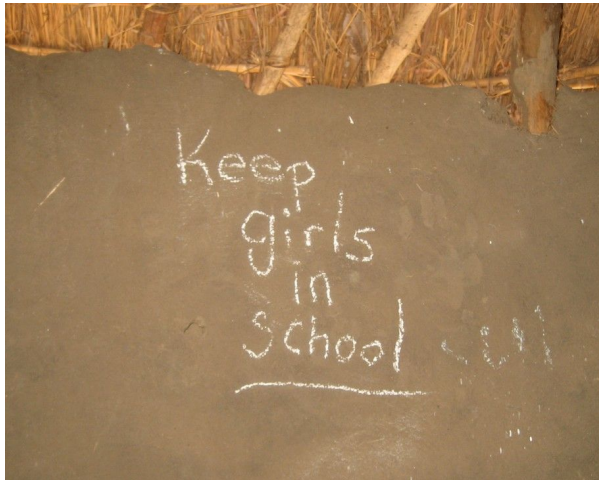 Keep
girls
in
school